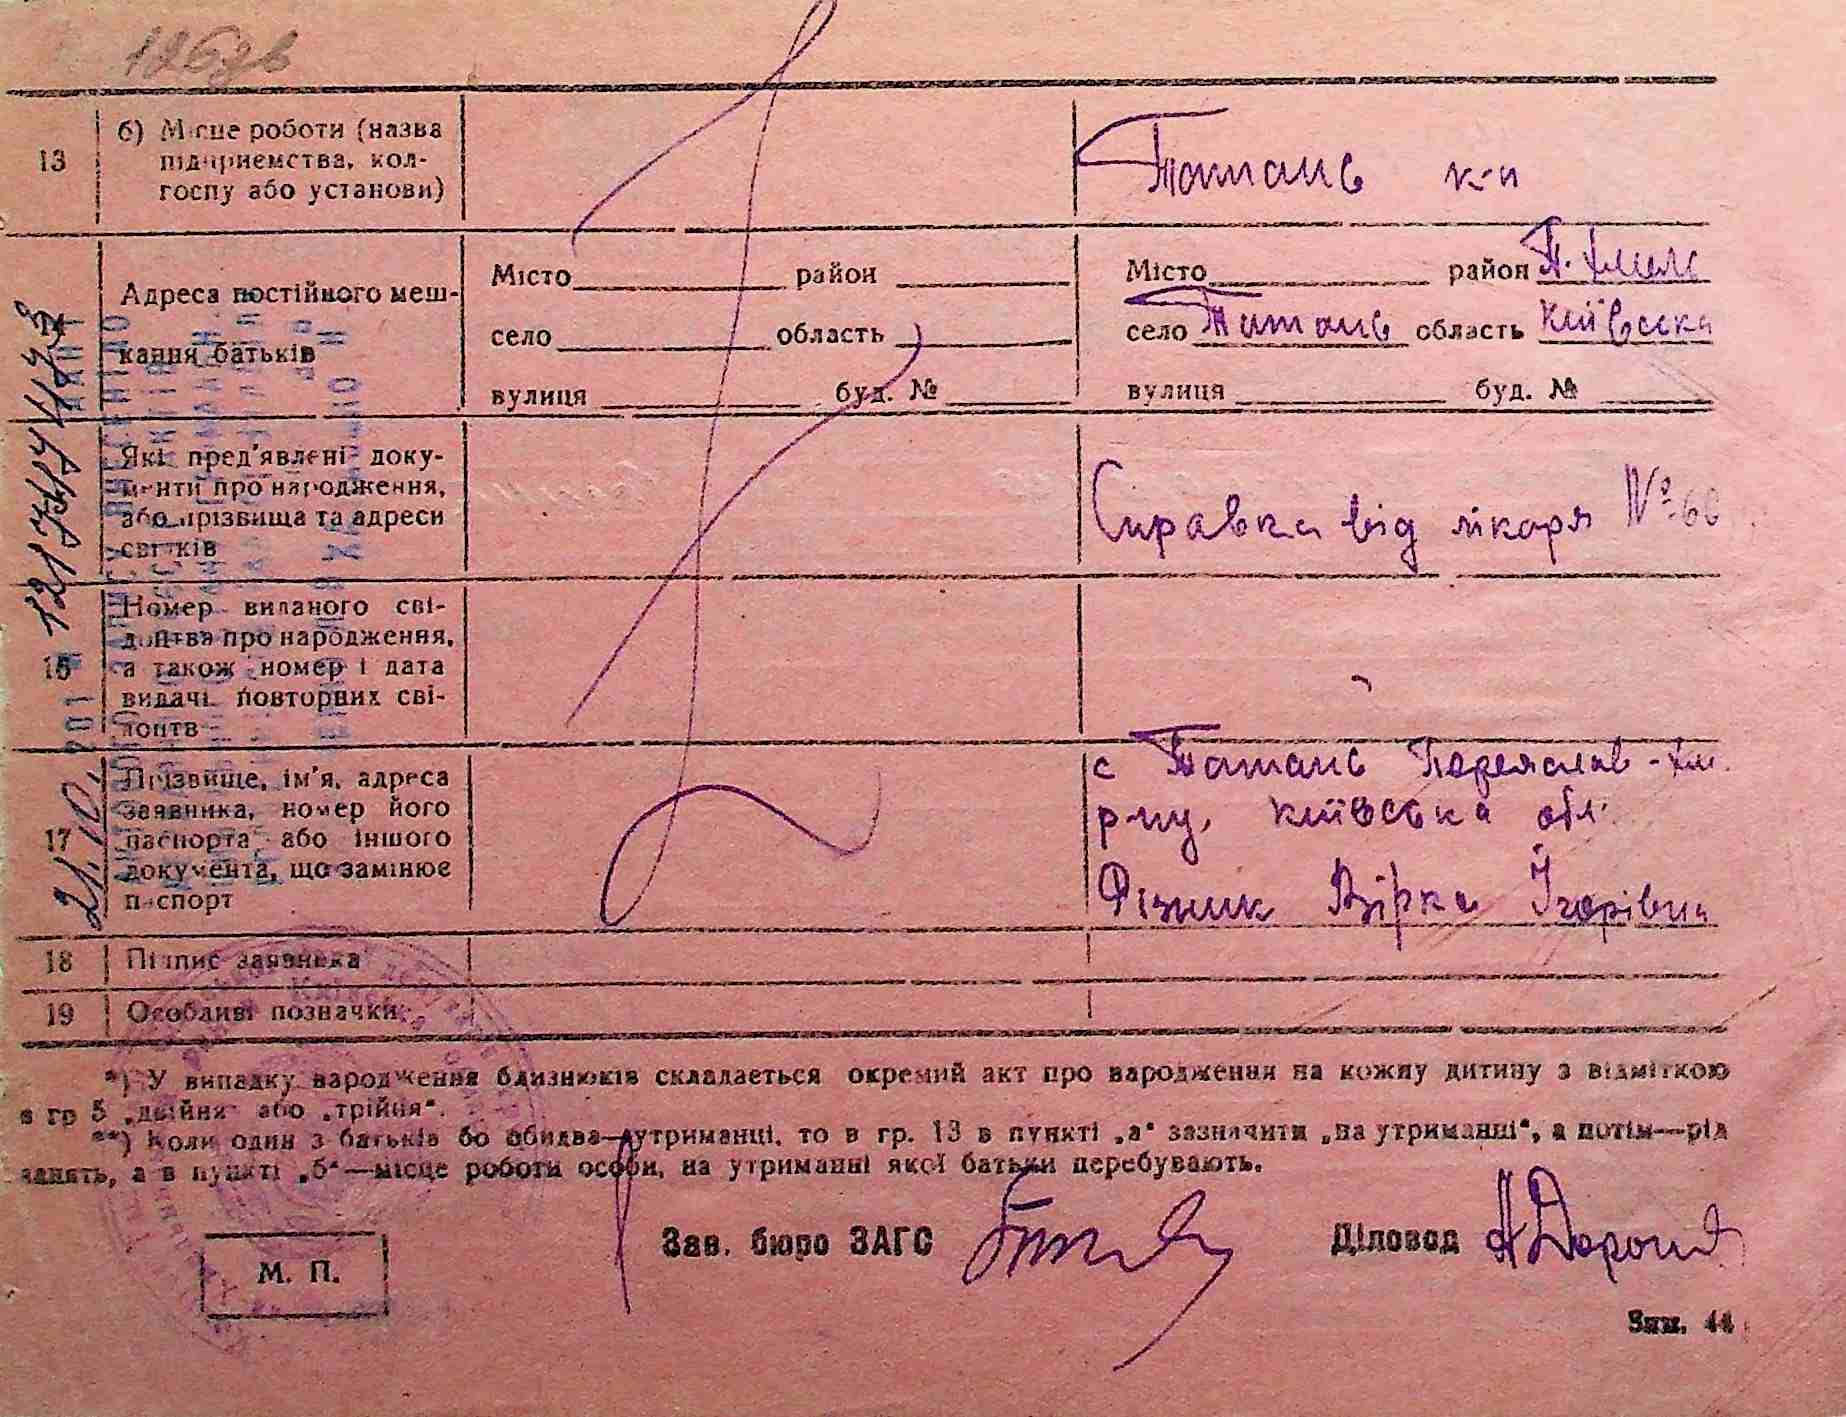 13
б) Місце роботи (назва
підприємства, кол-
госпу або установи)
к-п
Адреса постійного меш-
кання батьків
Місто район
село область
вулиця буд. №
Місто район П. Хмель
село область Київська
вулиця буд. №
Які пред'явлені доку-
менти про народження,
або прізвища та адреси
свідків
Справка від лікаря № 60
15
Номер виданого сві-
доцтва про народження,
а також номер і дата
видачі повторних сві-
доцтв
17
Прізвище, ім'я, адреса
заявника, номер його
паспорта або іншого
документа, що замінює
паспорт
с Переяслав-Хм.
р-ну, Київська обл.
Різник Вірка Ігорівна
18 Підпис заявника
19 Особливі позначки
*) У випадку народження близнюків складається окремий акт про народження на кожну дитину з відміткою
в гр 5 „двійня“ або „трійня“.
**) Коли один з батьків бо обидва—утриманці, то в гр. 13 в пункті „а“ зазначити „на утриманні“, а потім—рід
занять, а в пункті „б“—місце роботи особи, на утриманні якої батьки перебувають.
М. П.
Зав. бюро ЗАГС
Діловод
Зам. 44